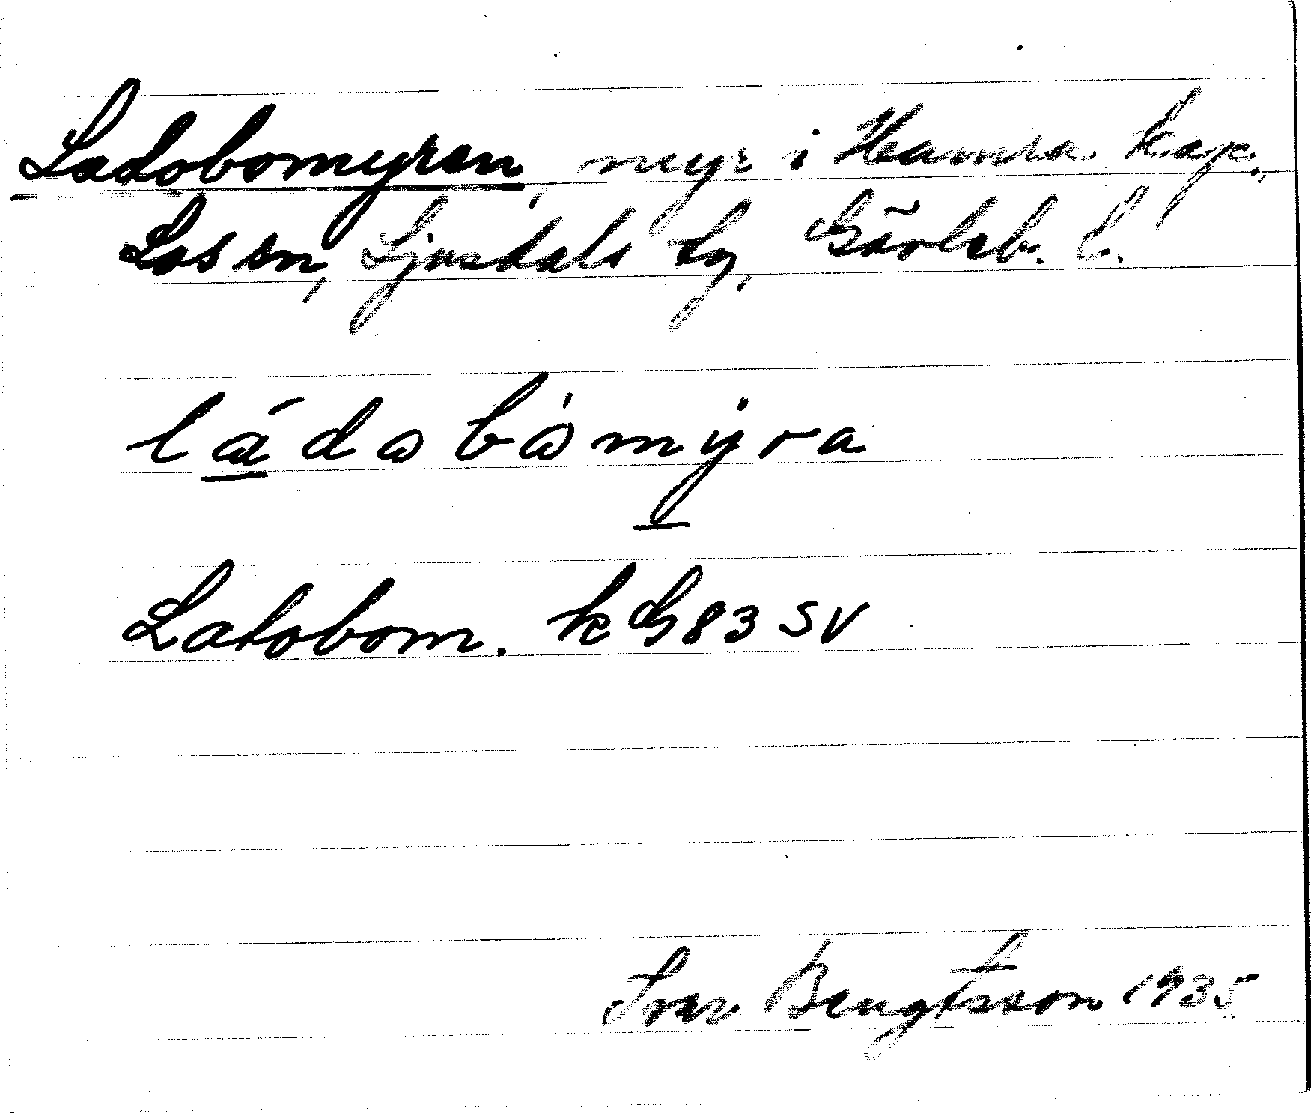 Ladobomyren, myr i Hamra kap.,
Los sn, Ljusdals tg, Gävleb. l.
lådabåmyra
Latobom. k G83 SV
Ivar Bengtsson 1935